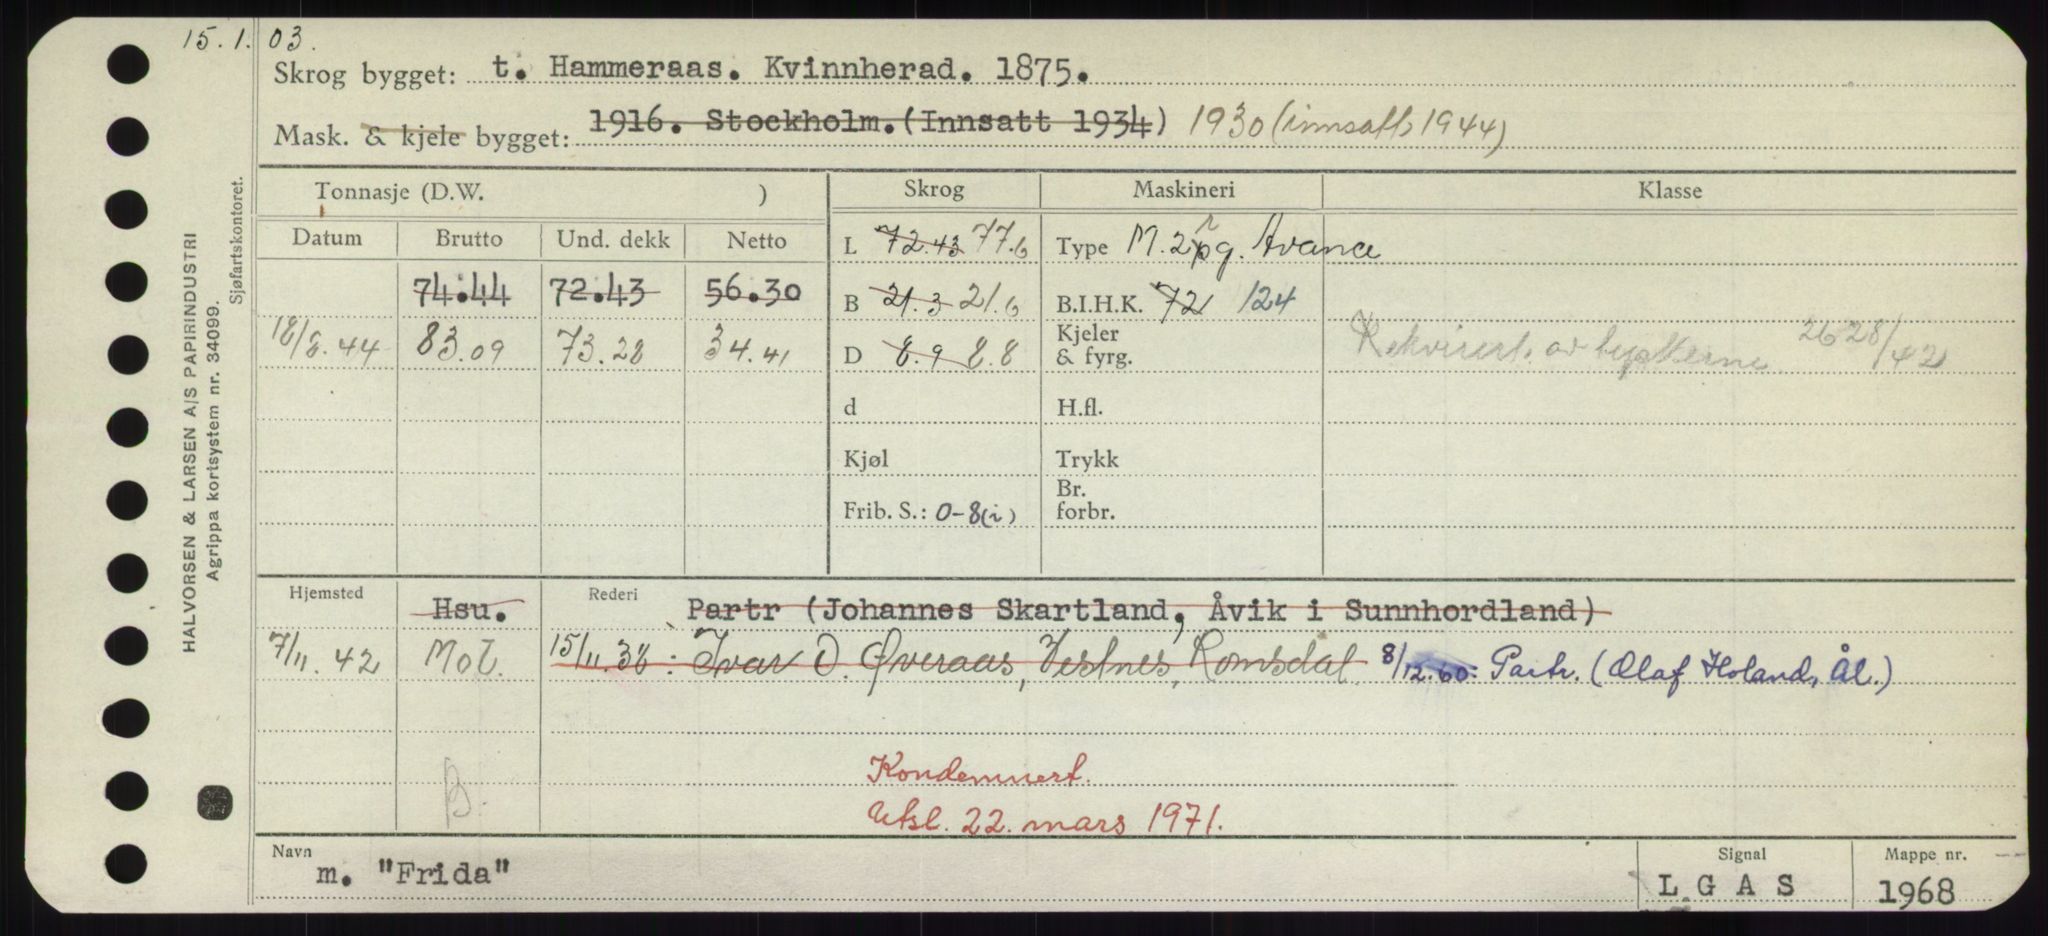 15.1.03.
Skrog bygget: t. Hammeraas. Kvinnherad. 1875.
Mask. & kjele bygget: 1916. Stockholm. (Innsatt 1934) 1930 (innsatt 1944)
Tonnasje (D.W. ) Skrog Maskineri Klasse
Datum Brutto Und. dekk Netto L 72.43 77.6 Type M. 2 pg. Avance
74.44 72.43 56.30 B 21.3 21.6 B.I.H.K. 72 124
18/8.44 83.09 73.28 34.41 D 8.9 8.8 Kjeler & fyrg. Rekvirert av tyskerne 26 28/42
d H.fl.
Kjøl Trykk
Frib. S.: 0-8(i) Br. forbr.
Hjemsted Hsu. Rederi Partr (Johannes Skartland, Åvik i Sunnhordland)
7/11.42 Mol. 15/11.38: Ivar O. Øveraas, Vestnes, Romsdal 8/12.60: Partr. (Olaf Holand, Ål.)
Kondemnert.
B. Utsl. 22. mars 1971.
Navn m. "Frida" Signal L G A S Mappe nr. 1968
HALVORSEN & LARSEN A/S PAPIRINDUSTRI
Agrippa kortsystem nr. 34099.
Sjøfartskontoret.